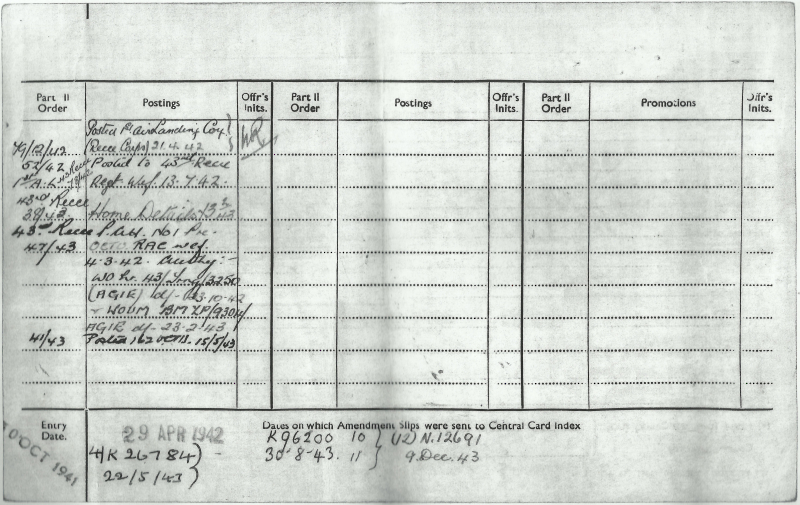 Part II Order Postings Offr's Inits. Part II Order Postings Offr's Inits. Part II Order Promotions Offr's Inits.
Posted 1st Air Landing Coy }
79/12/42 (Recce Corps) 21.4.42
52/42 Posted to 43rd Recce
1st A.L.
Regt wef. 13.7.42.
43rd Recce
38/43 Home Details 13.3.43
43rd Recce P.all. No 1 Pre-
47/43 OCTU RAC wef
4.3.42. Authy:-
WO Lr. 43/Trng/3350
(AG1E) d/- 23-10-42
+ WOUM BM LP/9304/
AG1E d/- 23-2-43
41/43 Posted 162 OCTU. 15/5/43
Entry Date. Dates on which Amendment Slips were sent to Central Card Index
10 OCT 1941
29 APR 1942 K96200 10 } (12) N.12691
4/K 26784) 30-8-43. 11 } 9. Dec. 43
22/5/43)